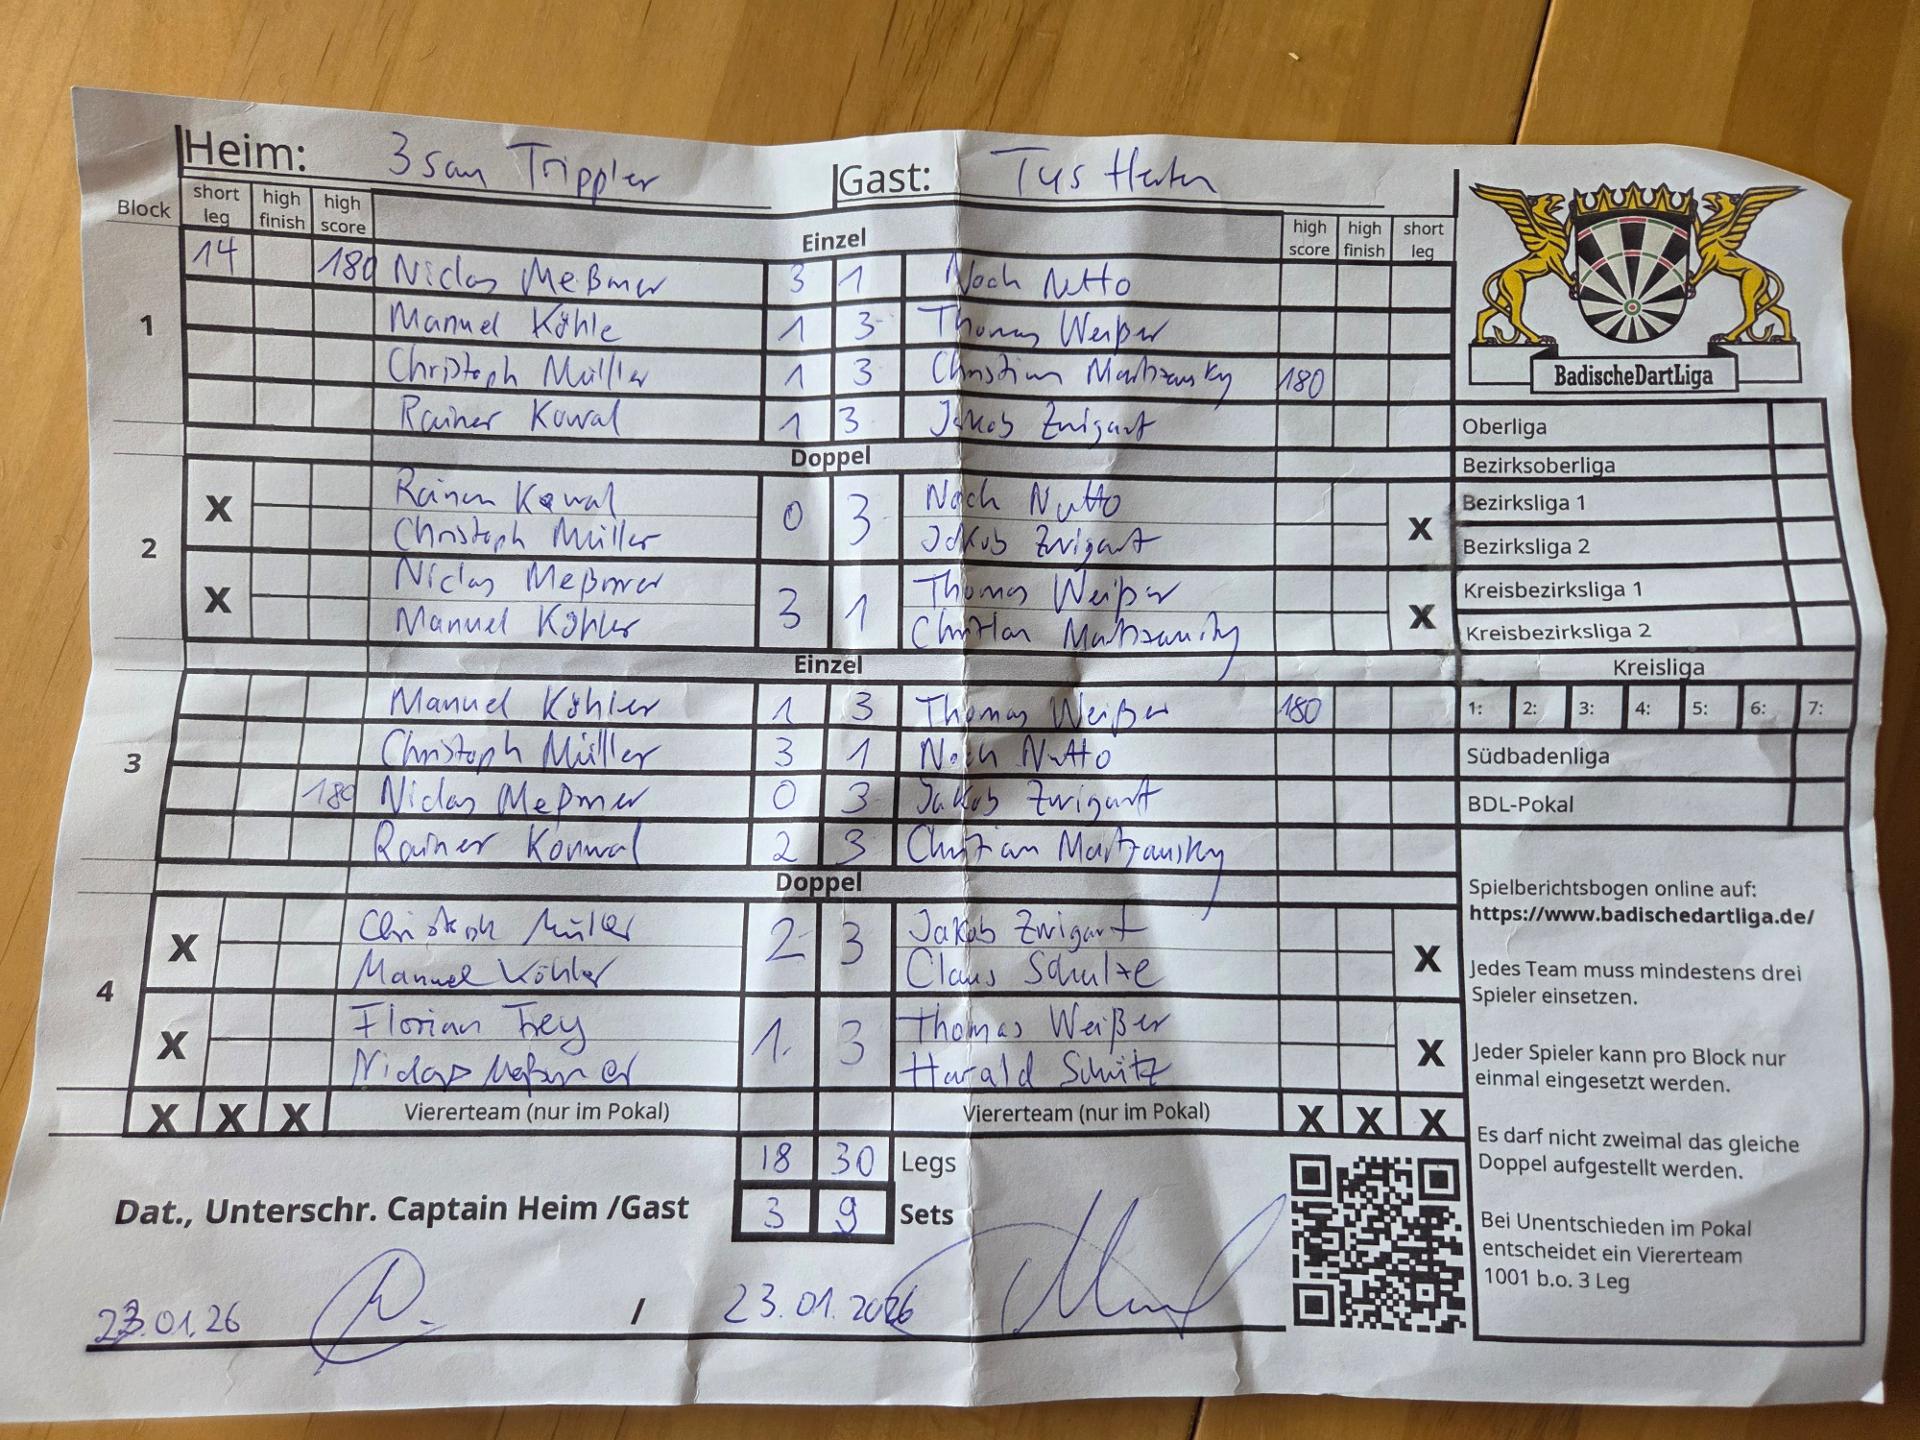 Heim: 3 sam Trippler Gast: Tus
Block short leg high finish high score Einzel high score high finish short leg
1
14 180 Niclas Meßmer 3 1 Noah Nutto
Manuel Köhle 1 3 Thomas Weißer
Christoph Müller 1 3 Christian Martzansky 180
Rainer Kowal 1 3 Jakob Zwigart
Doppel
2
X Rainer Kowal 0 3 Noah Nutto X
Christoph Müller Jakob Zwigart
X Niclas Meßmer 3 1 Thomas Weißer X
Manuel Köhler Christian Martzansky
Einzel
3
Manuel Köhler 1 3 Thomas Weißer 180
Christoph Müller 3 1 Noah Nutto
180 Niclas Meßmer 0 3 Jakob Zwigart
Rainer Konwal 2 3 Christian Martzansky
Doppel
4
X Christoph Müller 2 3 Jakob Zwigart X
Manuel Köhler Claus Schulze
X Florian Frey 1. 3 Thomas Weißer X
Niclas Meßmer Harald Schütz
X X X Viererteam (nur im Pokal) Viererteam (nur im Pokal) X X X
18 30 Legs
3 9 Sets
Dat., Unterschr. Captain Heim /Gast
23.01.26 / 23.01.2026
BadischeDartLiga
Oberliga
Bezirksoberliga
Bezirksliga 1
Bezirksliga 2
Kreisbezirksliga 1
Kreisbezirksliga 2
Kreisliga
1: 2: 3: 4: 5: 6: 7:
Südbadenliga
BDL-Pokal
Spielberichtsbogen online auf:
https://www.badischedartliga.de/
Jedes Team muss mindestens drei
Spieler einsetzen.
Jeder Spieler kann pro Block nur
einmal eingesetzt werden.
Es darf nicht zweimal das gleiche
Doppel aufgestellt werden.
Bei Unentschieden im Pokal
entscheidet ein Viererteam
1001 b.o. 3 Leg